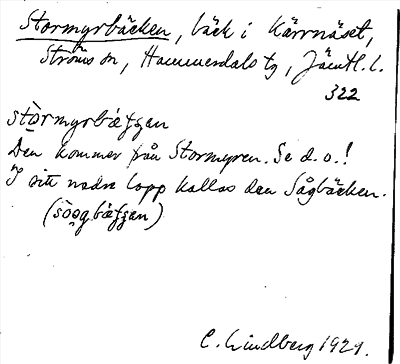 Stormyrbäcken, bäck i Kärrnäset,
Ströms sn, Hammerdals tg, Jämtl. l.
322
stòrmyrbæʃʃen
Den kommer från Stormyren. Se d.o.!
I sitt nedre lopp kallas den Sågbäcken.
(sòogbæʃʃen)
C. Lindberg 1929.